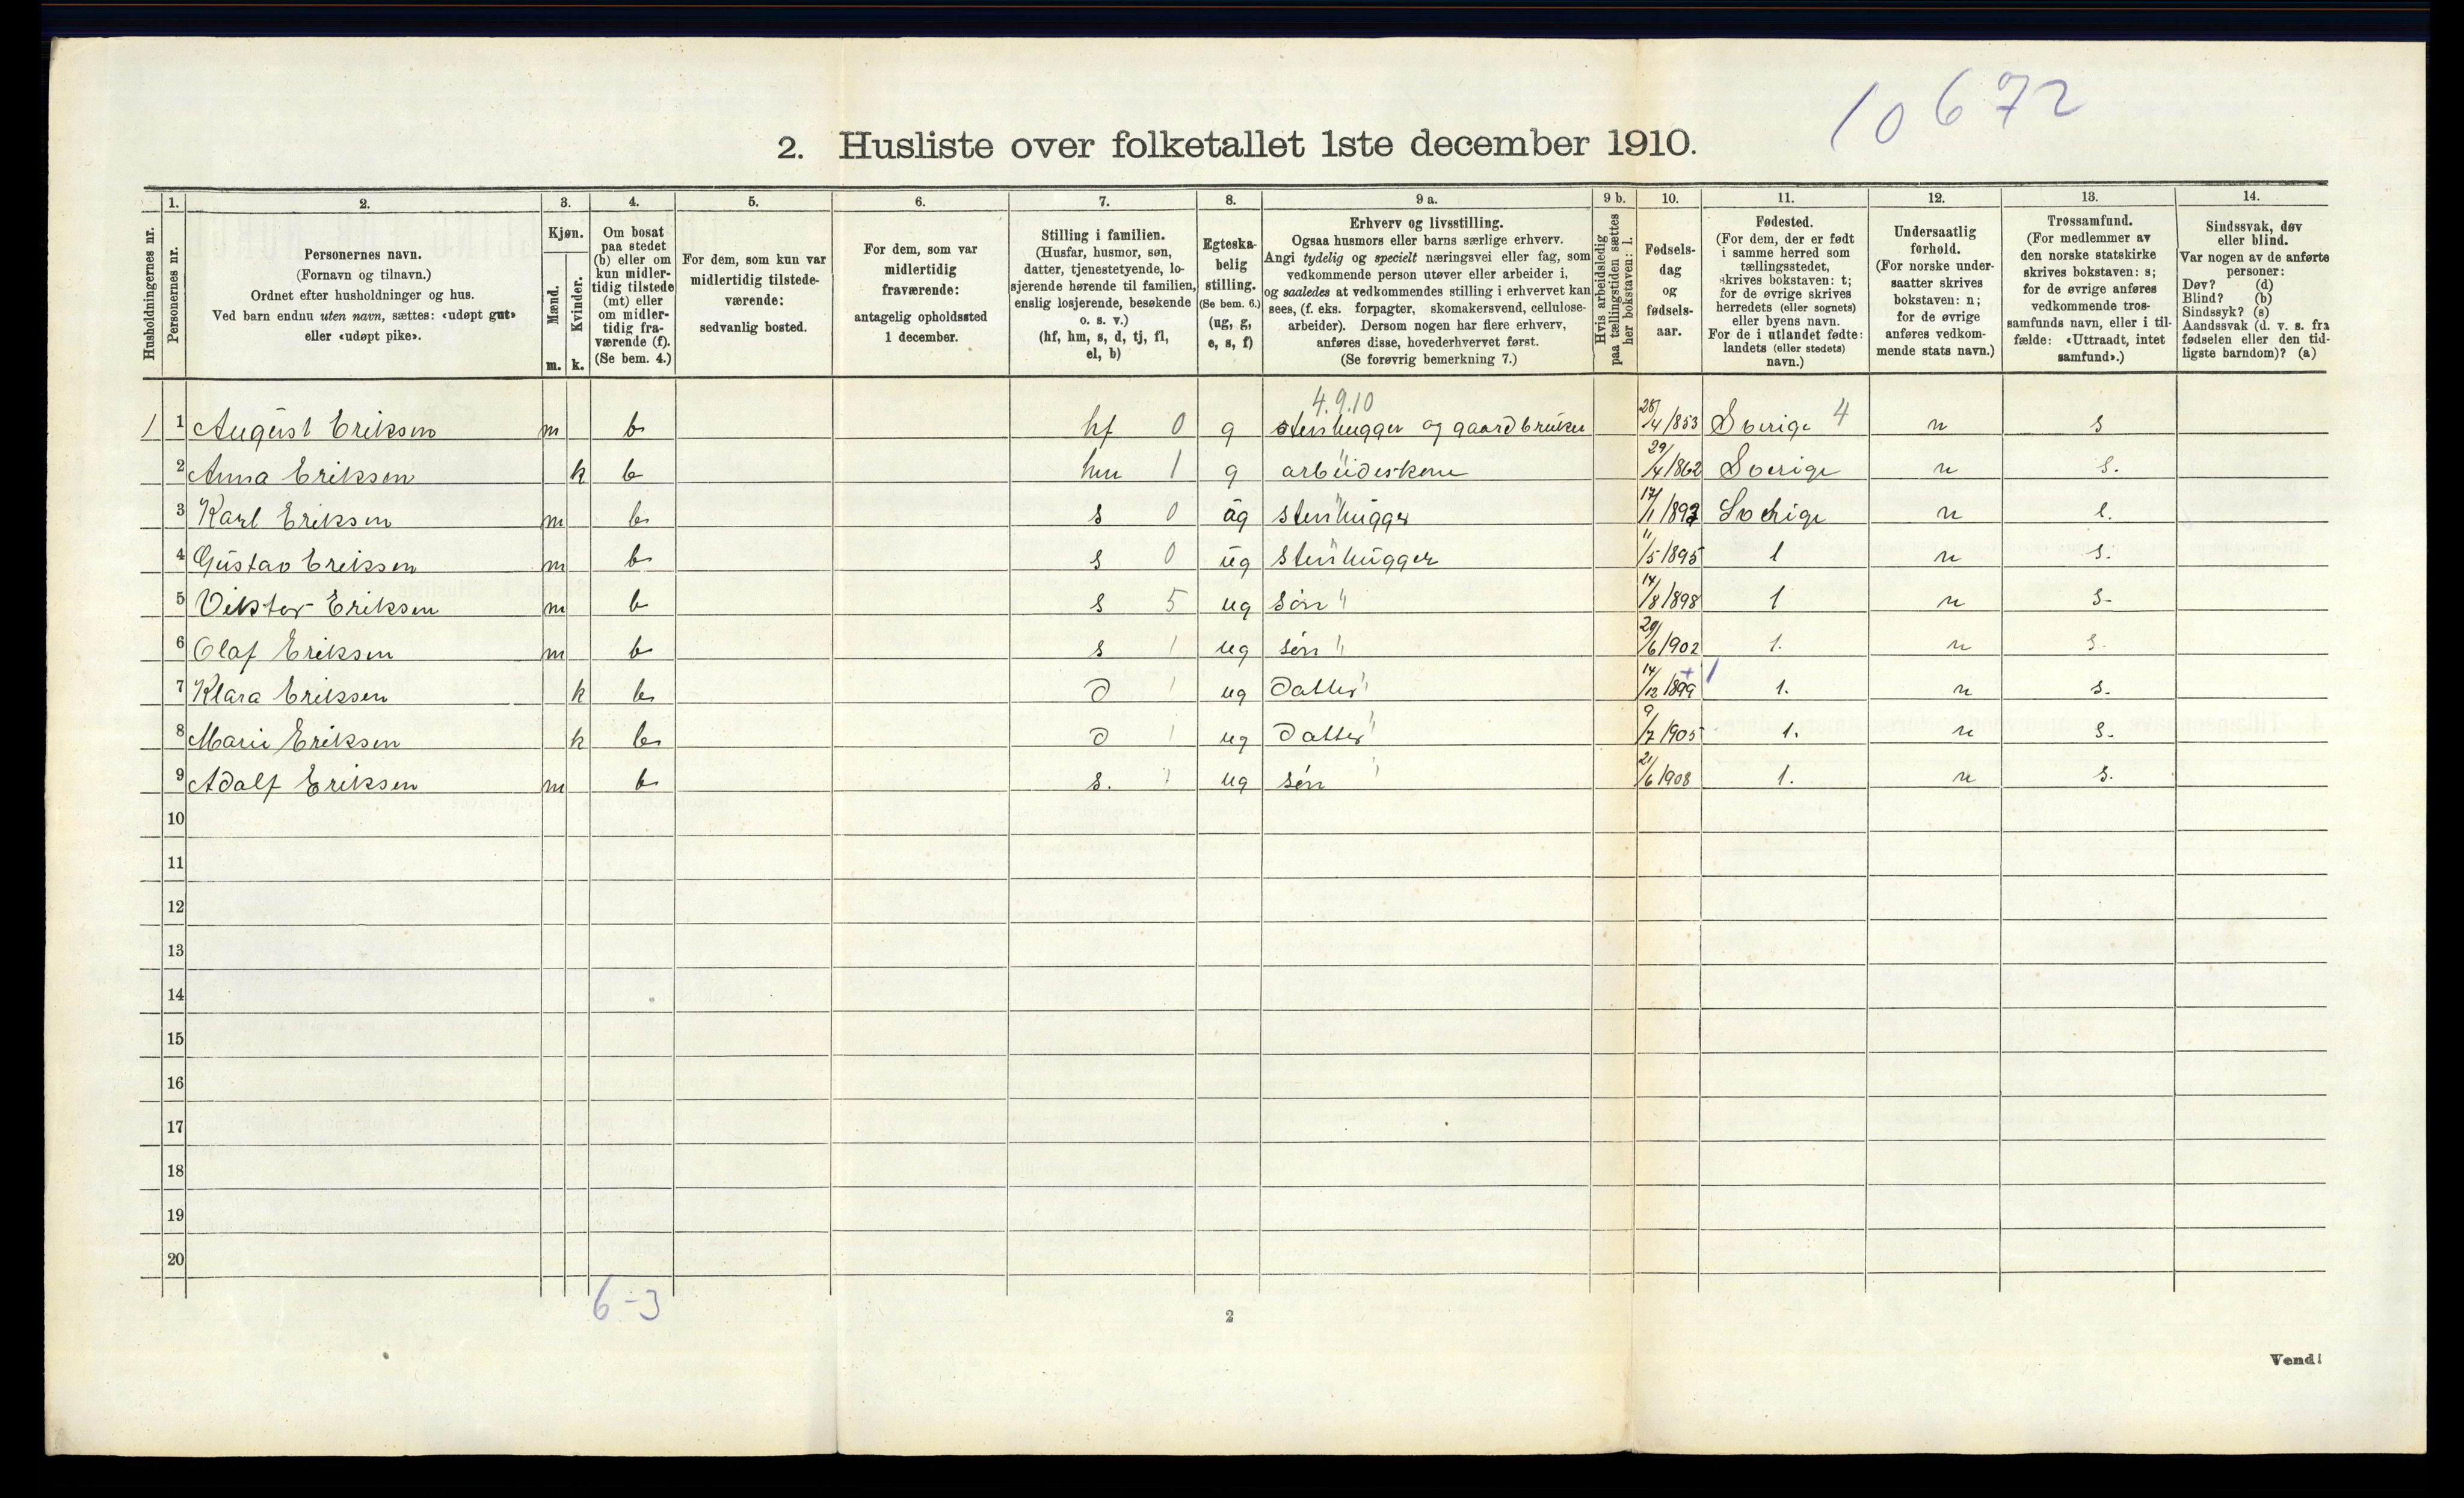 10672
2. Husliste over folketallet 1ste december 1910.
Husholdningernes nr.
1.
Personernes nr.
2.
Personernes navn.
(Fornavn og tilnavn.)
Ordnet efter husholdninger og hus.
Ved barn endnu uten navn, sættes: «udøpt gut»
eller «udøpt pike».
3.
Kjøn.
Mænd.
Kvinder.
m. k.
4.
Om bosat
paa stedet
(b) eller om
kun midler-
tidig tilstede
(mt) eller
om midler-
tidig fra-
værende (f).
(Se bem. 4.)
5.
For dem, som kun var
midlertidig tilstede-
værende:
sedvanlig bosted.
6.
For dem, som var
midlertidig
fraværende:
antagelig opholdssted
1 december.
7.
Stilling i familien.
(Husfar, husmor, søn,
datter, tjenestetyende, lo-
sjerende hørende til familien,
enslig losjerende, besøkende
o. s. v.)
(hf, hm, s, d, tj, fl,
el, b)
8.
Egteska-
belig
stilling.
(Se bem. 6.)
(ug, g,
e, s, f)
9 a.
Erhverv og livsstilling.
Ogsaa husmors eller barns særlige erhverv.
Angi tydelig og specielt næringsvei eller fag, som
vedkommende person utøver eller arbeider i,
og saaledes at vedkommendes stilling i erhvervet kan
sees, (f. eks. forpagter, skomakersvend, cellulose-
arbeider). Dersom nogen har flere erhverv,
anføres disse, hovederhvervet først.
(Se forøvrig bemerkning 7.)
9 b.
Hvis arbeidsledig
paa tællingstiden sættes
her bokstaven: l.
10.
Fødsels-
dag
og
fødsels-
aar.
11.
Fødested.
(For dem, der er født
i samme herred som
tællingsstedet,
skrives bokstaven: t;
for de øvrige skrives
herredets (eller sognets)
eller byens navn.
For de i utlandet fødte:
landets (eller stedets)
navn.)
12.
Undersaatlig
forhold.
(For norske under-
saatter skrives
bokstaven: n;
for de øvrige
anføres vedkom-
mende stats navn.)
13.
Trossamfund.
(For medlemmer av
den norske statskirke
skrives bokstaven: s;
for de øvrige anføres
vedkommende tros-
samfunds navn, eller i til-
fælde: «Uttraadt, intet
samfund».)
14.
Sindssvak, døv
eller blind.
Var nogen av de anførte
personer:
Døv? (d)
Blind? (b)
Sindssyk? (s)
Aandssvak (d. v. s. fra
fødselen eller den tid-
ligste barndom)? (a)
4.9.10
1 1 August Eriksen m b hf 0 g stenhugger og gaardbruker 28/4 1853 Sverige 4 n s
2 Anna Eriksen k b hm 1 g 29/4 1862 Sverige n s.
3 Karl Eriksen m b s 0 ug stenhugger 17/1 1892 Sverige n s.
4 Gustav Eriksen m b s 0 ug stenhugger 11/5 1895 1 n s.
5 Viktor Eriksen m b s 5 ug søn 14/8 1898 1 n s-
6 Olaf Eriksen m b s 1 ug søn 20/6 1902 1. n s-
7 Klara Eriksen k b d 1 ug datter 14/12 1899 + 1 1. n s-
8 Marie Eriksen k b d 1 ug datter 9/7 1905 1. n s-
9 Adolf Eriksen m b s. 1 ug søn 21/6 1908 1. n s.
10
11
12
13
14
15
16
17
18
19
20
6-3
2
Vend!